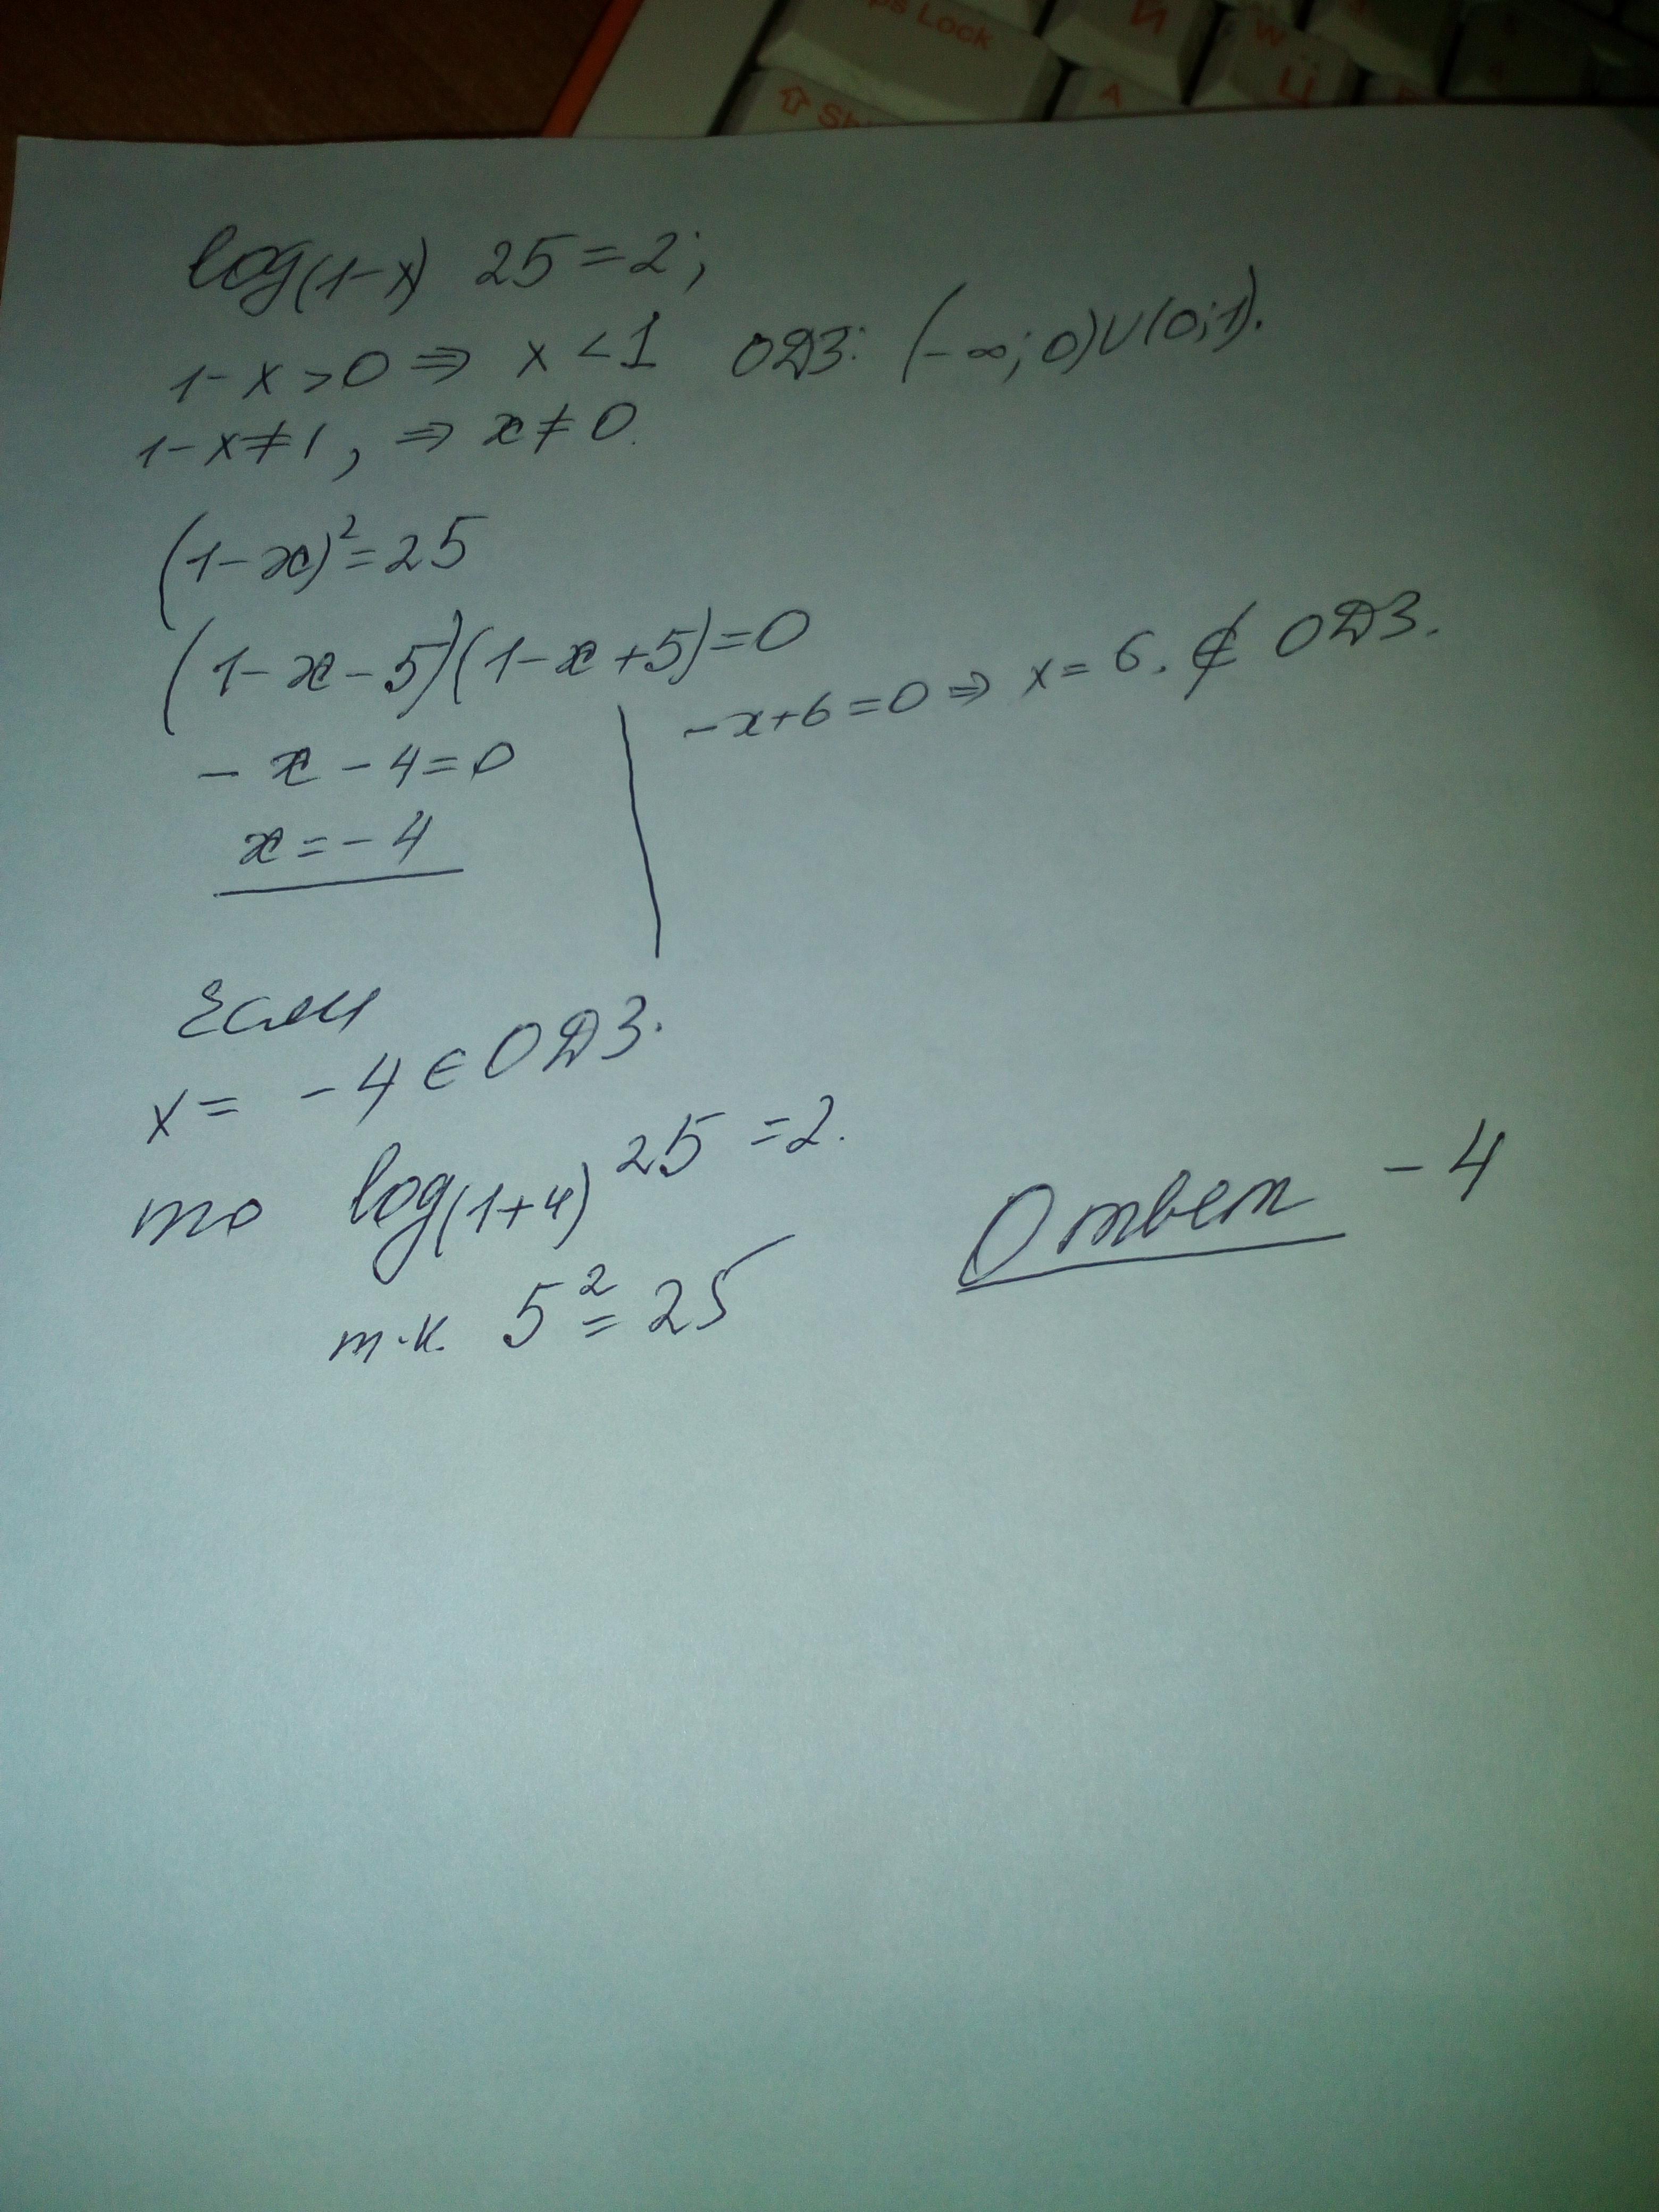 ps Lock
И
W
Ц
Sh
A
log(1-x) 25=2;
1-x>0⇒ x<1 ОДЗ: (-∞;0)∪(0;1).
1-x≠1, ⇒ x≠0.
(1-x)²=25
(1-x-5)(1-x+5)=0
-x-4=0
-x+6=0⇒ x=6. ∉ ОДЗ.
x=-4
Если
x= -4∈ОДЗ.
то log(1+4) 25=2.
т.к. 5²=25
Ответ -4